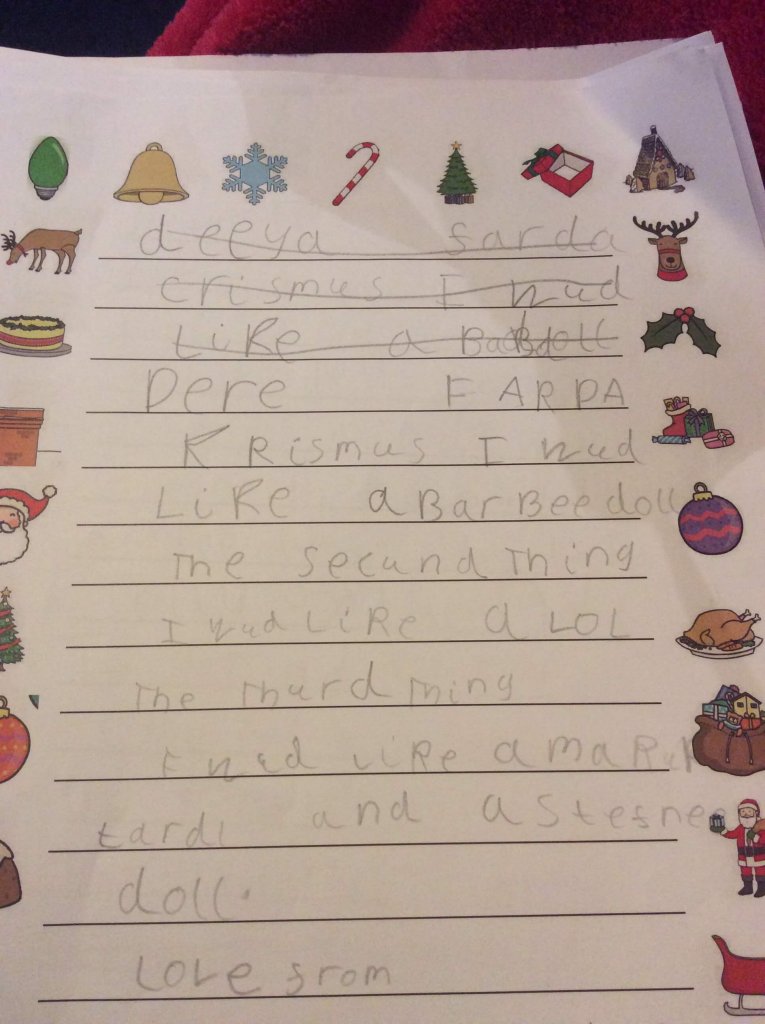 deeya farda
crismus I wud
Like a doll
Dere FARDA
KRismus I wud
LiRe a BarBee doll
The Secund Thing
I wud LiRe a LOL
The Thurd Thing
I wud LiRe a
tardi and a Stefnee
doll.
Love from